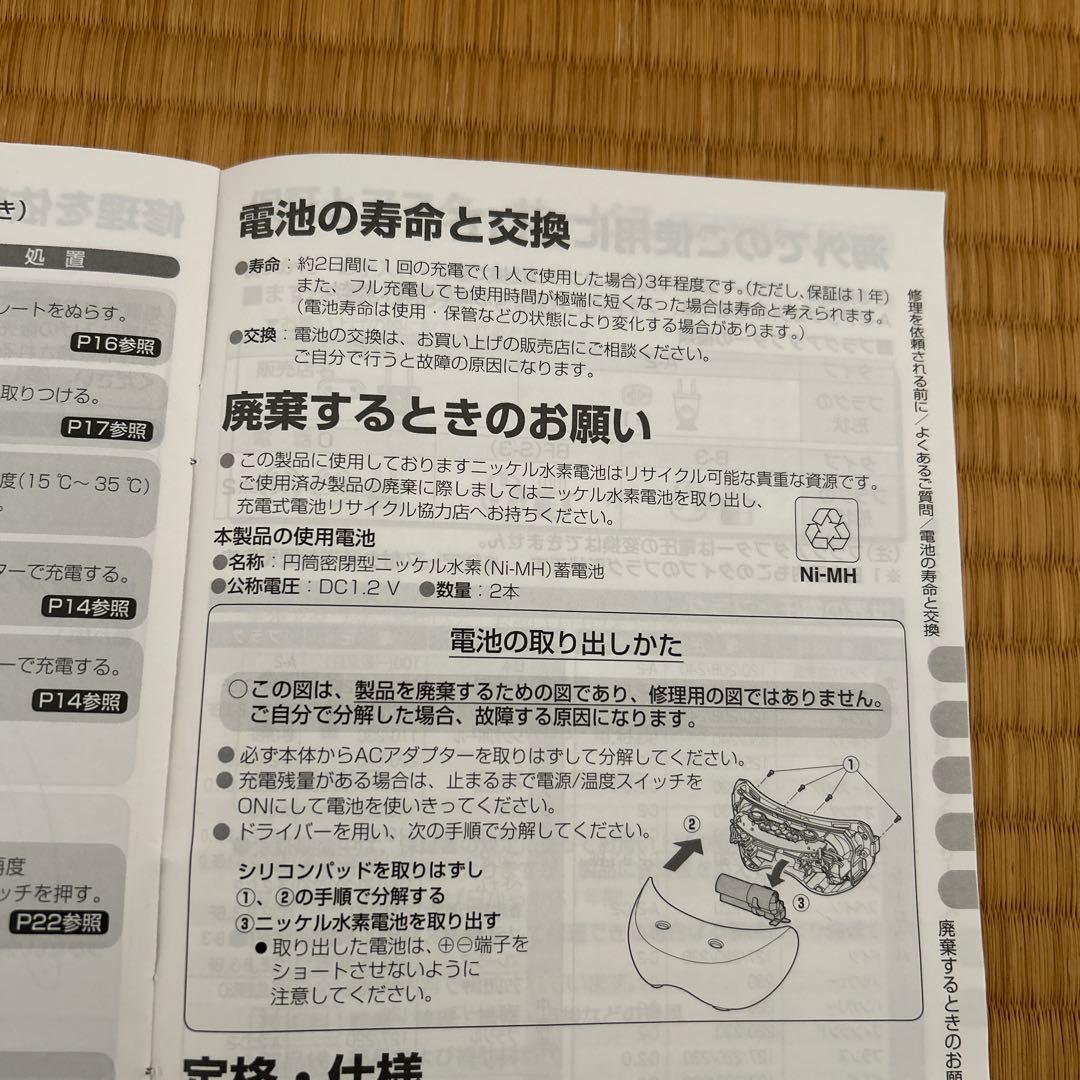 き）
処置
レートをぬらす。
P16参照
取りつける。
P17参照
度(15 ℃〜 35 ℃)
ターで充電する。
P14参照
ーで充電する。
P14参照
再度
ッチを押す。
P22参照
電池の寿命と交換
●寿命：約2日間に1回の充電で(1人で使用した場合)3年程度です。(ただし、保証は1年)
また、フル充電しても使用時間が極端に短くなった場合は寿命と考えられます。
(電池寿命は使用・保管などの状態により変化する場合があります。)
●交換：電池の交換は、お買い上げの販売店にご相談ください。
ご自分で行うと故障の原因になります。
廃棄するときのお願い
● この製品に使用しておりますニッケル水素電池はリサイクル可能な貴重な資源です。
ご使用済み製品の廃棄に際しましてはニッケル水素電池を取り出し、
充電式電池リサイクル協力店へお持ちください。
Ni-MH
本製品の使用電池
●名称：円筒密閉型ニッケル水素(Ni-MH)蓄電池
●公称電圧：DC1.2 V ●数量：2本
電池の取り出しかた
○この図は、製品を廃棄するための図であり、修理用の図ではありません。
ご自分で分解した場合、故障する原因になります。
● 必ず本体からACアダプターを取りはずして分解してください。
● 充電残量がある場合は、止まるまで電源/温度スイッチを
ONにして電池を使いきってください。
● ドライバーを用い、次の手順で分解してください。
シリコンパッドを取りはずし
①、②の手順で分解する
③ニッケル水素電池を取り出す
● 取り出した電池は、⊕⊖端子を
ショートさせないように
注意してください。
①
②
③
定格・仕様
修理を依頼される前に／よくあるご質問／電池の寿命と交換
廃棄するときのお願